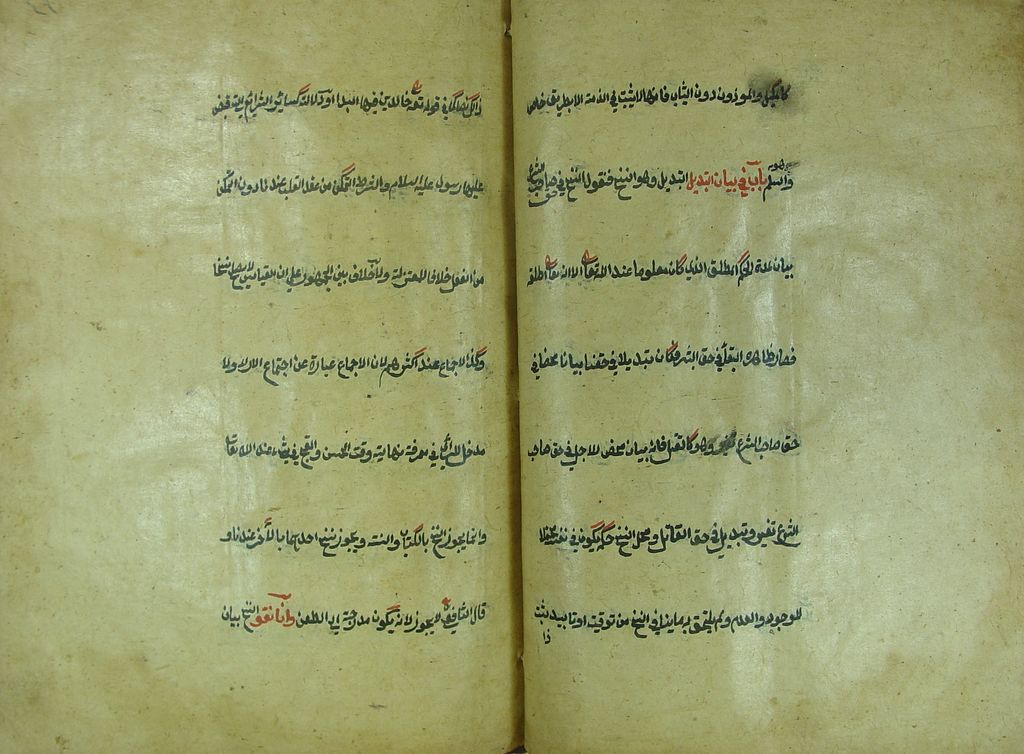 كالمكيل والموزون دون الثياب فانها لا تثبت في الذمة الا بطريق خاص
وهو السلم باب في بيان التبديل التبديل وهو النسخ فنقول النسخ في حق صاحب الشرع
بيان لمدة الحكم المطلق الذي كان معلوما عند الله تعالى الا انه تعالى اطلقه
فصار ظاهره البقاء في حق البشر فكان تبديلا في حقنا بيانا محضا في
حق صاحب الشرع وهو كالقتل فانه بيان محض للاجل في حق صاحب
الشرع تغيير وتبديل في حق القاتل ومحل النسخ حكم يكون في نفسه محتملا
للوجود والعدم ولم يلتحق به ما ينافي النسخ من توقيت او تابيد ثبت
ذا
ذلك نصا كما في قوله تعالى خالدين فيها ابدا او دلالة كسائر الشرايع التي قبض
عليها رسول عليه السلام والشرط التمكن من عقد القلب عندنا دون التمكن
من الفعل خلافا للمعتزلة ولا خلاف بين الجمهور على ان القياس لا يصلح ناسخا
وكذا الاجماع عند اكثرهم لان الاجماع عبارة عن اجتماع الاراء ولا
مدخل للراي في معرفة نهاية وقت الحسن والقبح في شيء عند الله تعالى
وانما يجوز النسخ بالكتاب والسنة ويجوز نسخ احدهما بالآخر عندنا و
قال الشافعي لا يجوز لانه يكون مدرجة الى الطعن وانا نقول النسخ بيان